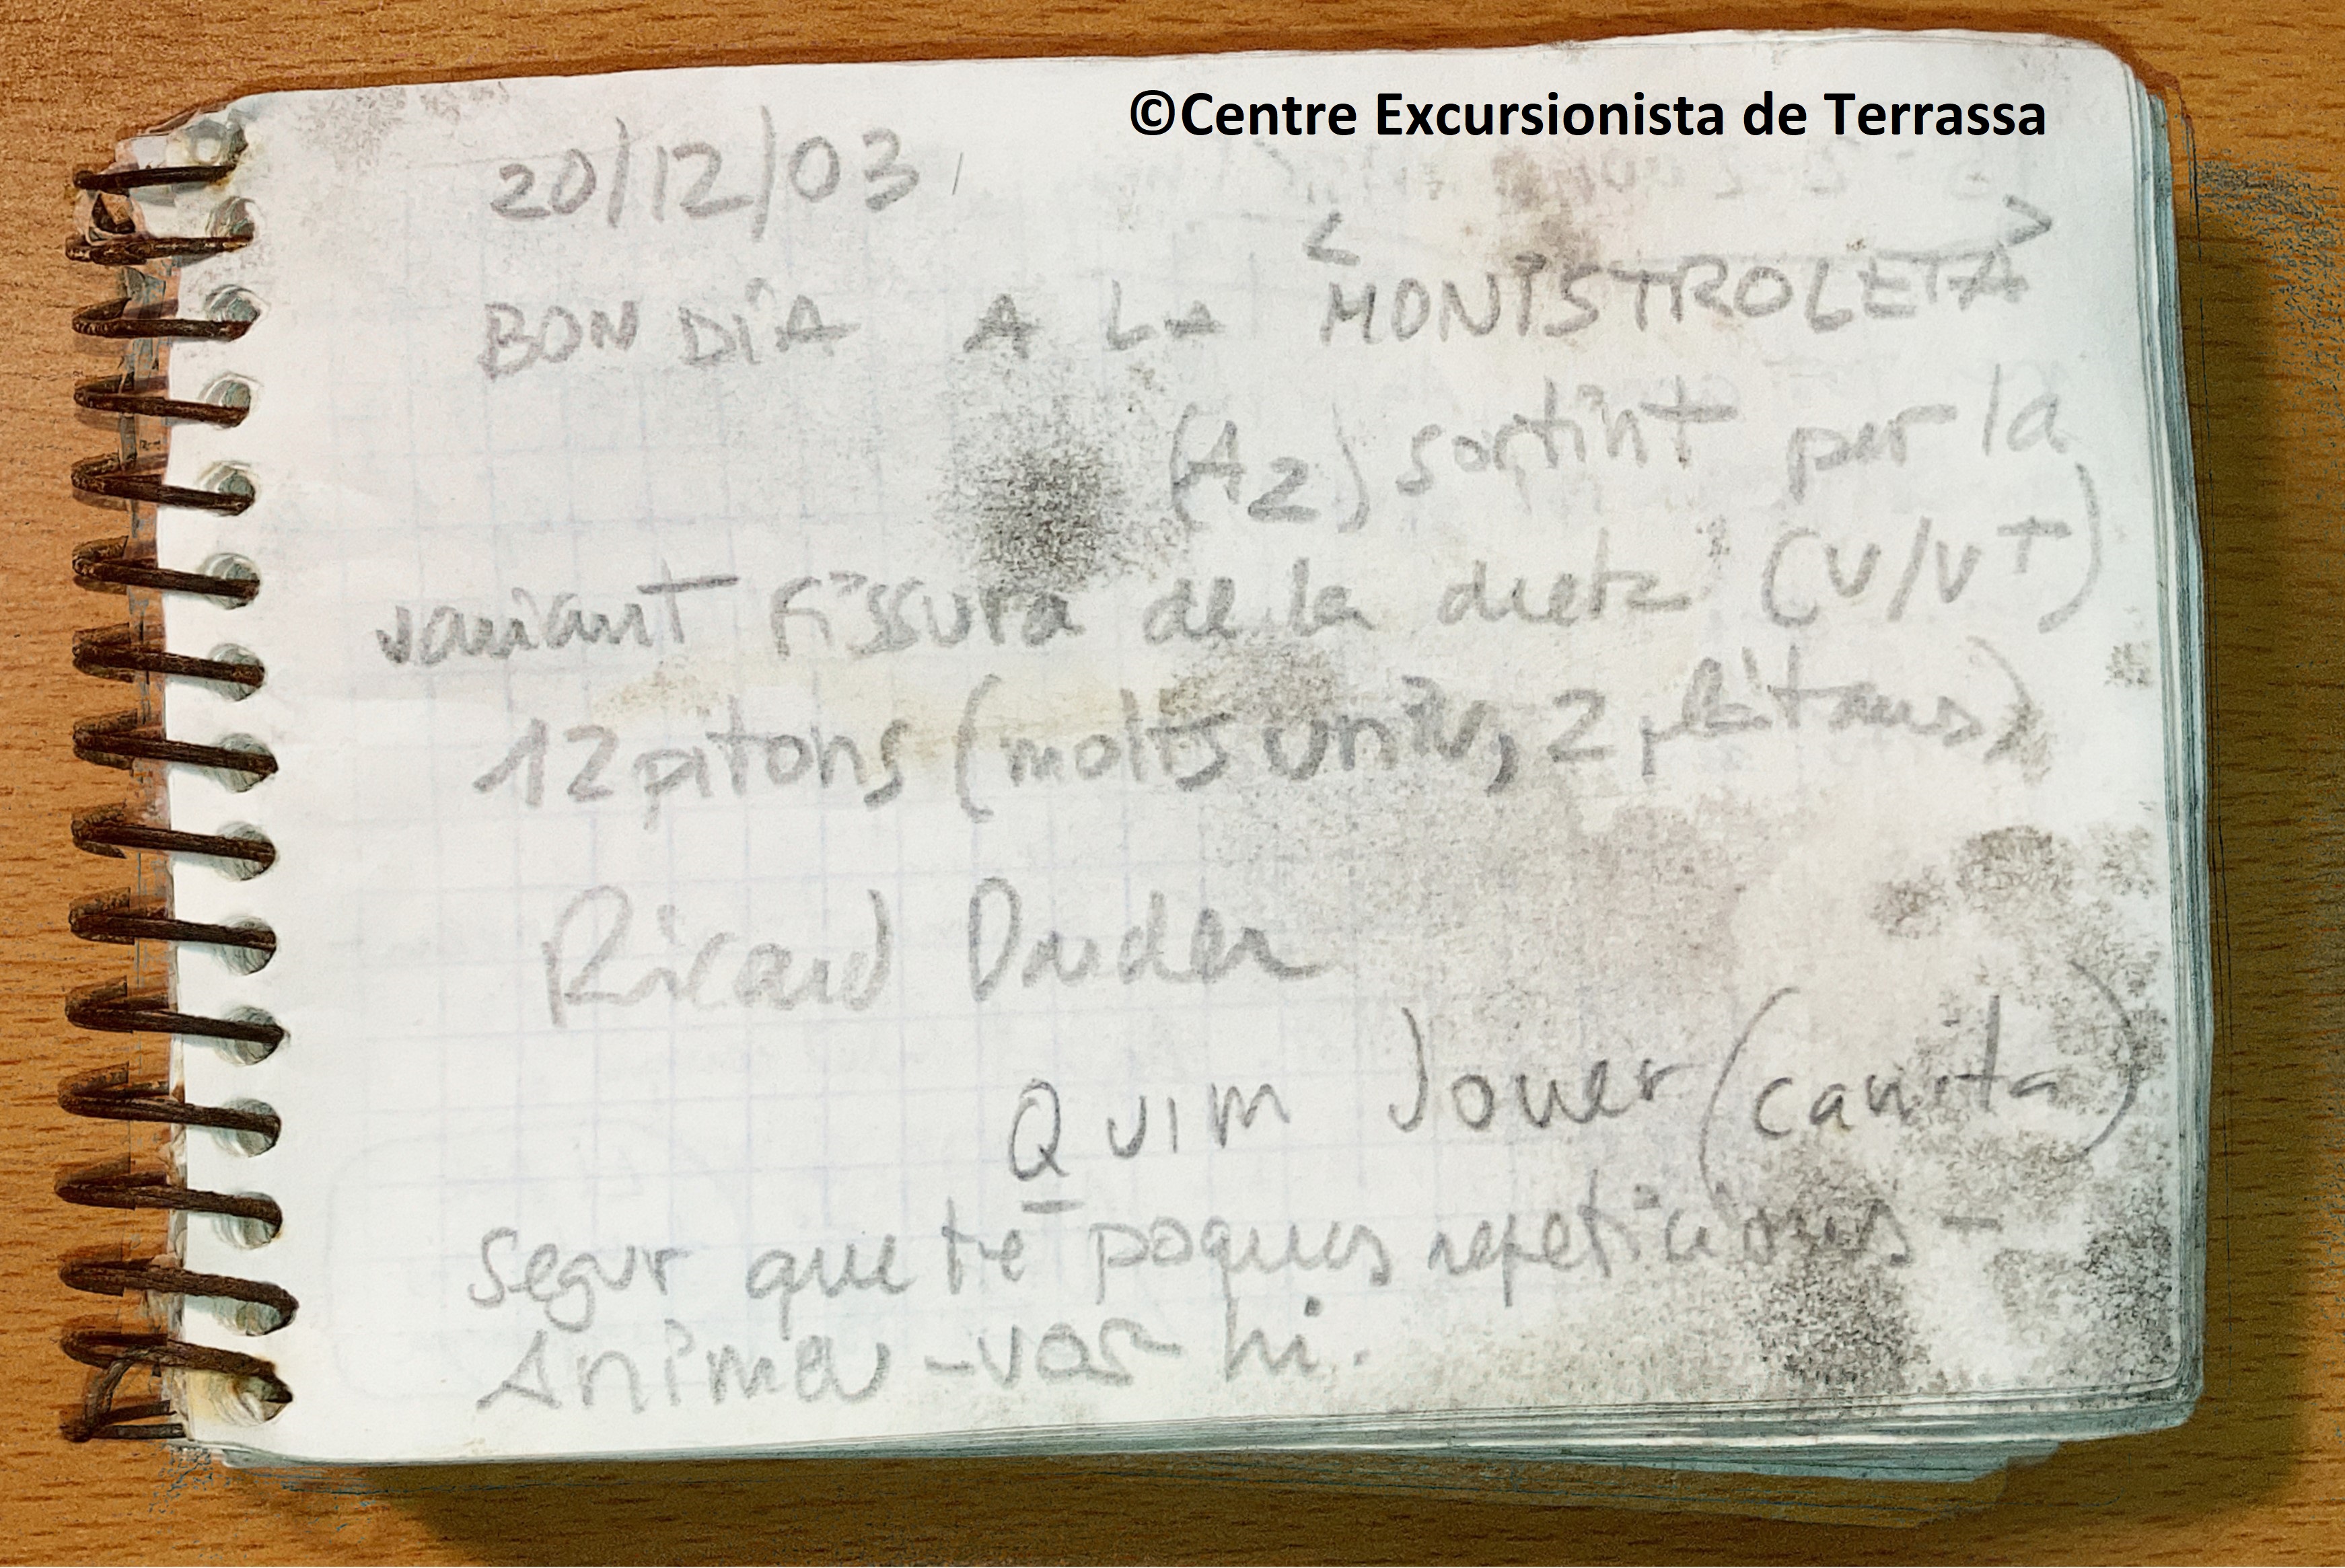 ©Centre Excursionista de Terrassa
20/12/03
BON DIA A LA <MONISTROLETA>
(A2) sortint per la
variant fissura de la dreta (V/V+)
12 pitons (molts univ, 2
Ricard Darder
Quim Jover (canita)
Segur que té poques repeticions -
Animeu-vos-hi.